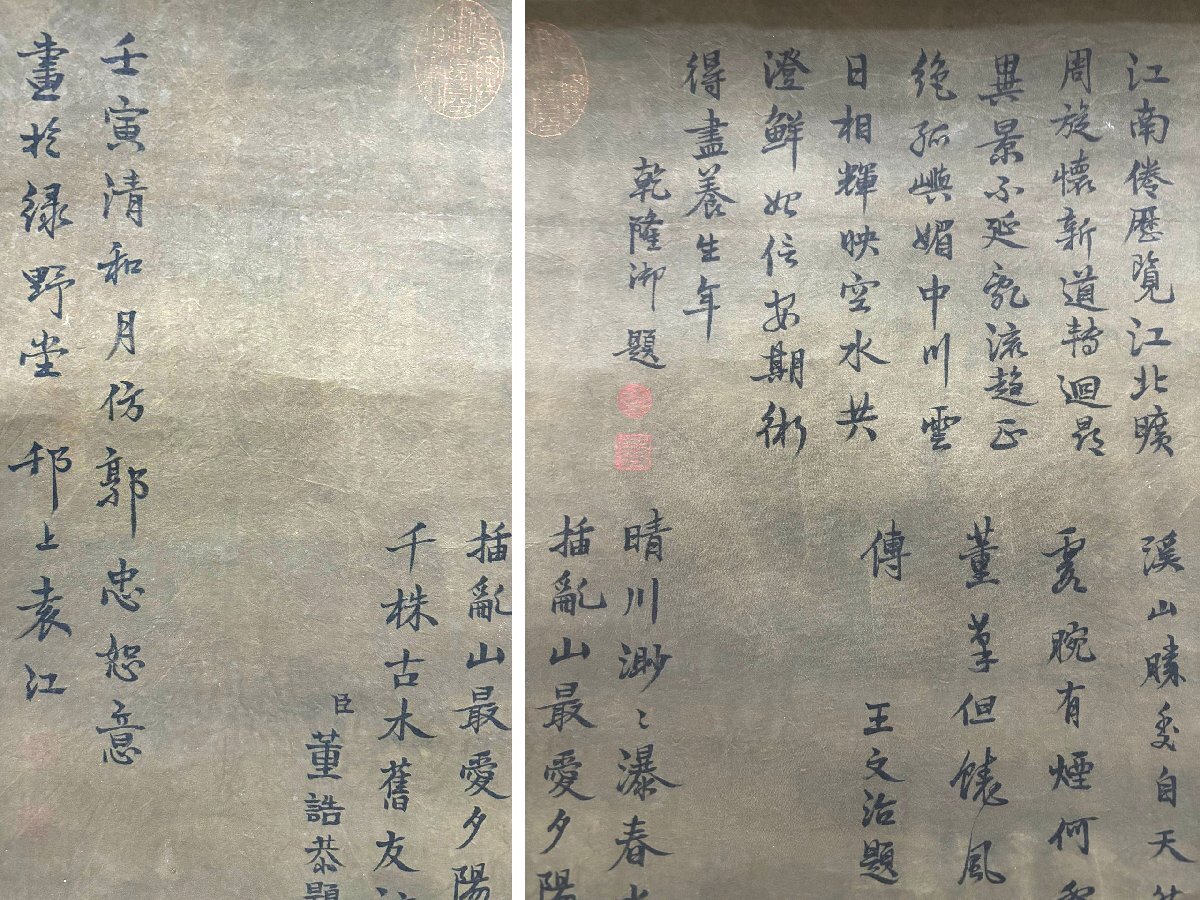 江南倦歷覽江北曠
周旋懷新道轉迴尋
異景不延亂流趨正
絶孤嶼媚中川雲
日相輝映空水共
澄鮮始信安期術
得盡養生年
乾隆御題
溪山勝自天
腕有煙何
董筆但饒風
傳
王文治題
晴川渺〻瀑春
插亂山最愛夕陽
插亂山最愛夕陽
千株古木舊友
臣董誥恭題
壬寅清和月仿郭忠恕意
畫於緑野堂 邗上袁江